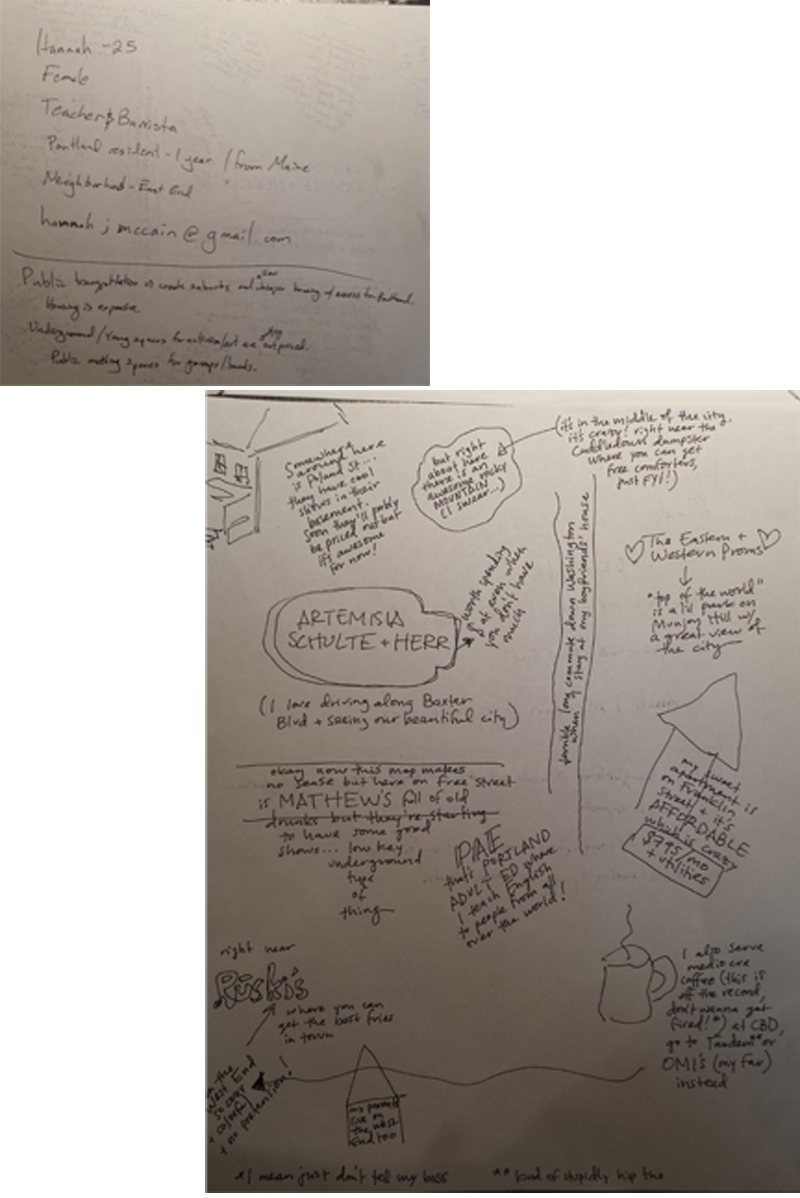 Hannah - 25
Female
Teacher & Barrista
Portland resident - 1 year / from Maine
Neighborhood - East End
hannah j mccain @ gmail.com
Public transportation create suburbs and cheaper housing w/ access to Portland.
Housing is expensive.
Underground / Young spaces for activism/art are being outpriced.
Public meeting spaces for groups/bands.
Somewhere
around here
is Poland St...
they have cool
shows in their
basement.
soon they'll prbly
be priced out but
it's awesome
for now!
but right
about here
there is an
awesome rocky
MOUNTAIN
(I swear...)
(it's in the middle of the city.
it's crazy! right near the
Cuddledown dumpster
where you can get
free comforters,
just FYI!)
The Eastern +
Western Proms
"top of the world"
is a lil park on
Munjoy Hill w/
a great view of
the city
ARTEMISIA
SCHULTE + HERR
worth spending
$ at even when
you don't have
much
terrible long commute down Washington
when I stay at my boyfriends' house
(I love driving along Baxter
Blvd + seeing our beautiful city)
okay now this map makes
no sense but here on free street
is MATHEW'S full of old
drunks but they're starting
to have some good
shows... low key
underground
type
of
thing
my sweet
apartment is
on Franklin
street + it's
AFFORDABLE
which is crazy
$795/mo
+ utilities
PAE
that's PORTLAND
ADULT ED where
I teach English
to people from all
over the world!
right near
Ruski's
where you can
get the best fries
in town
in the
West End
so cozy
+ colorful
+ no pretention!
my parents
live on
the west
end too
I also serve
mediocre
coffee (this is
off the record,
don't wanna get
fired!*) at CBD,
go to Tandem** or
OMI's (my fav)
instead
*I mean just don't tell my boss
** kind of stupidly hip tho